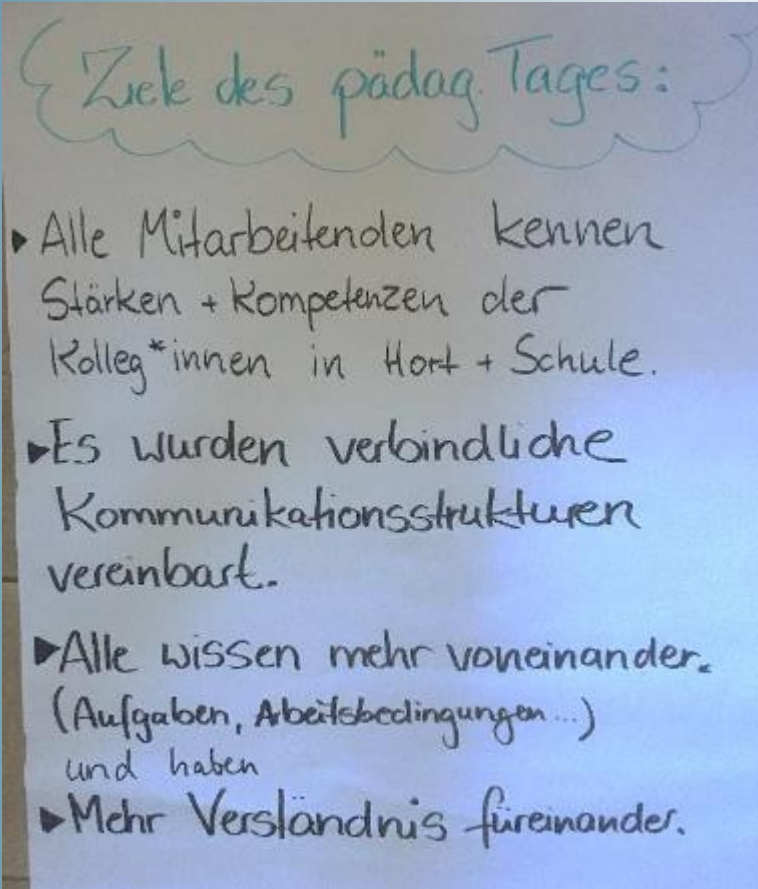 Ziele des pädag. Tages:
▸ Alle Mitarbeitenden kennen
Stärken + Kompetenzen der
Kolleg*innen in Hort + Schule.
▸ Es wurden verbindliche
Kommunikationsstrukturen
vereinbart.
▸ Alle wissen mehr voneinander.
(Aufgaben, Arbeitsbedingungen...)
und haben
▸ Mehr Verständnis füreinander.